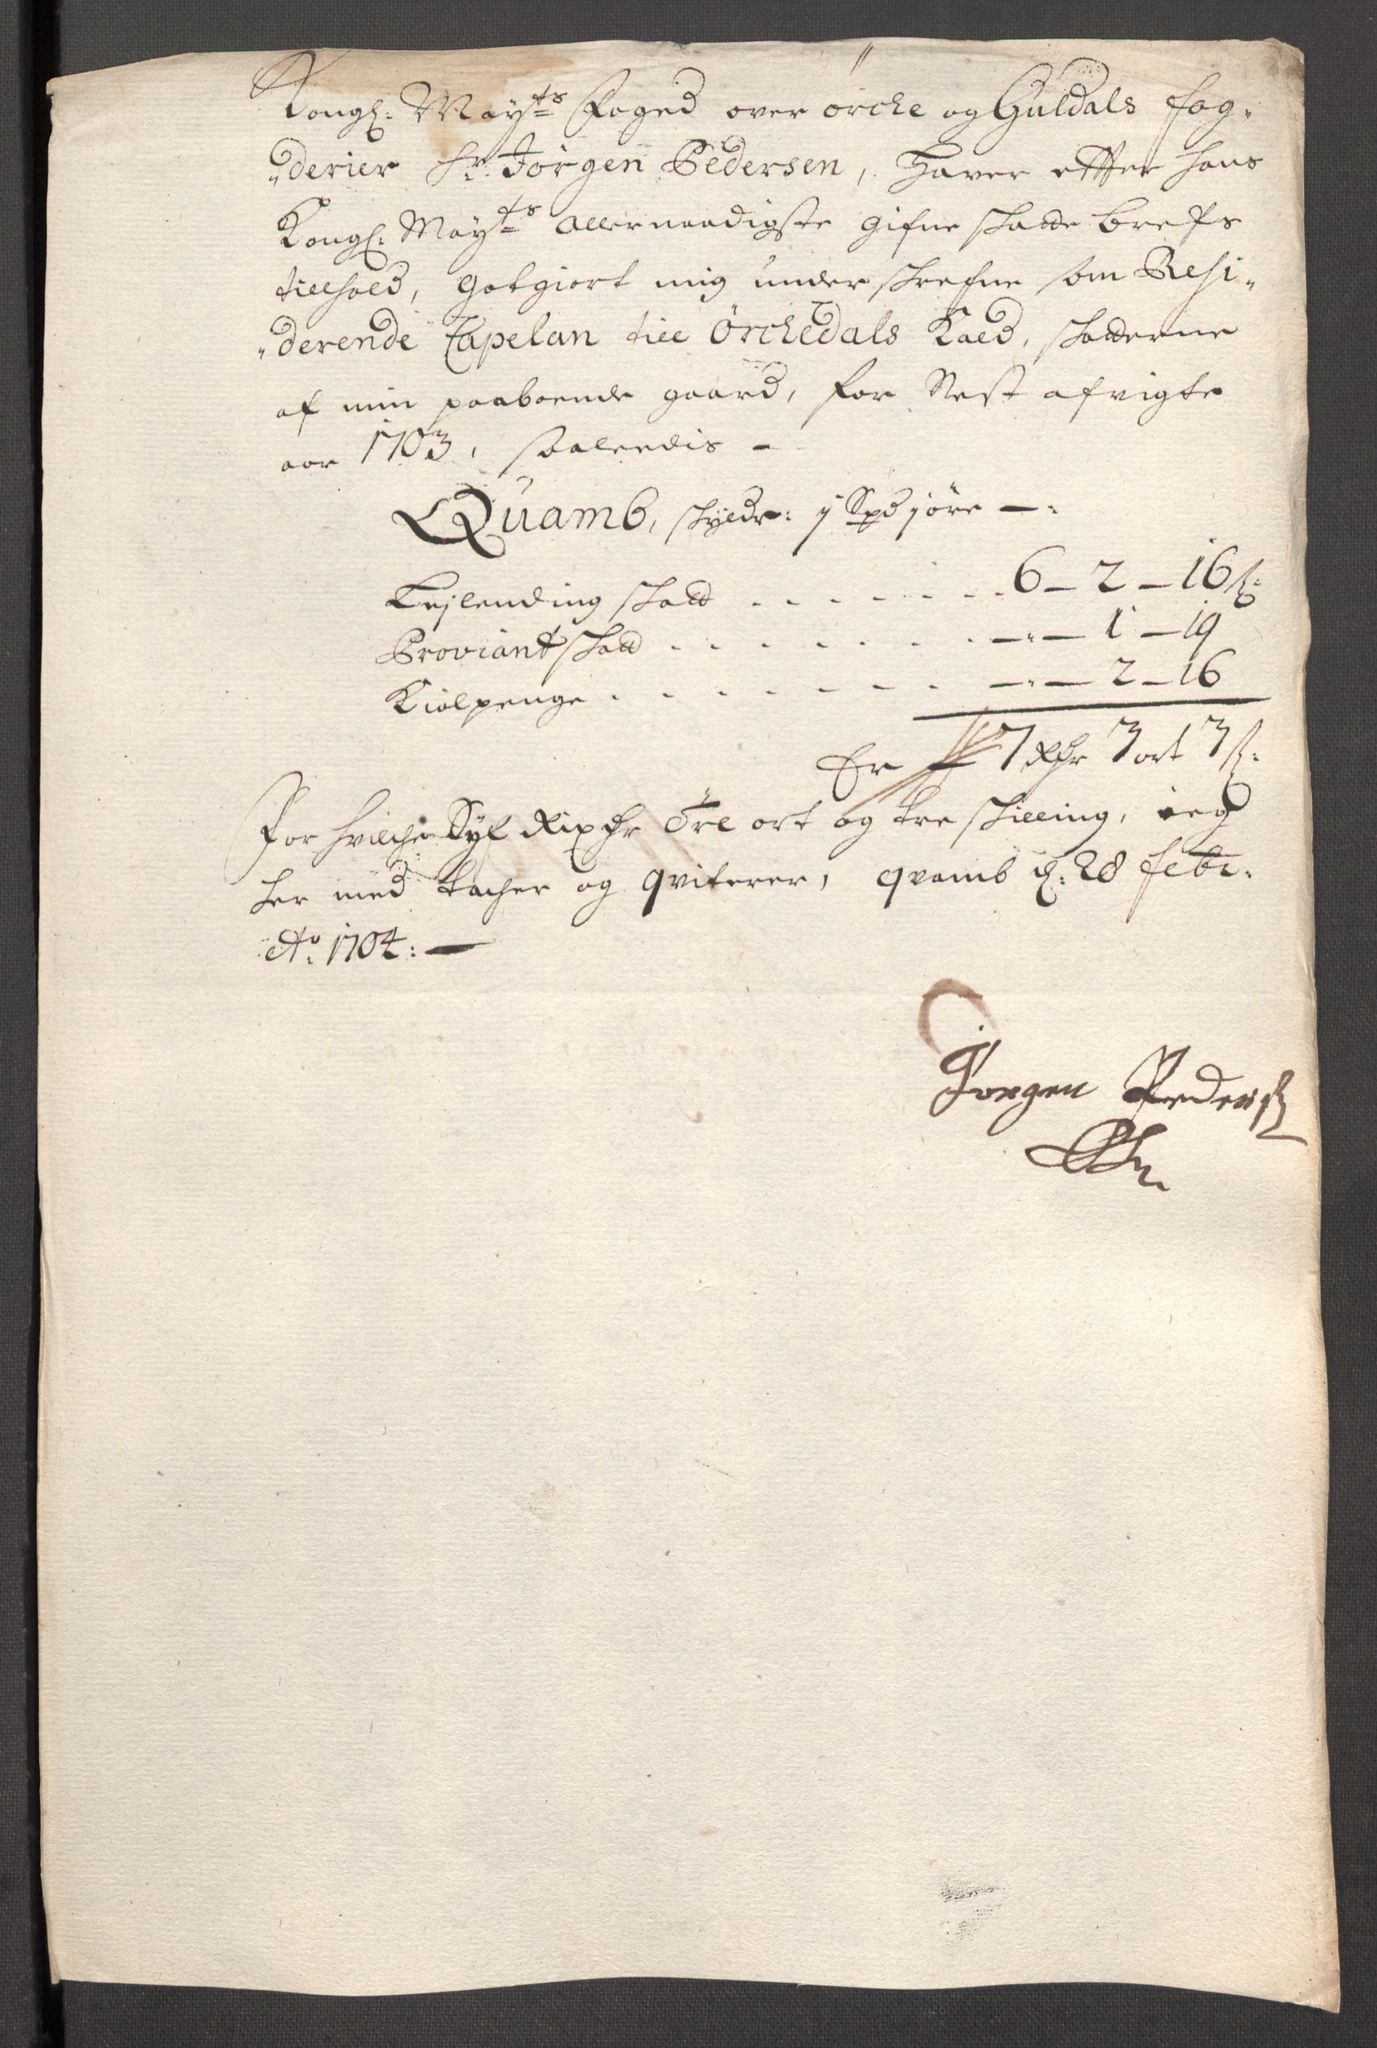 Kongl: May:ts Foged over örche og Guldals fog-
„derier Sr. Jörgen Pedersen, Haver effter hans
Kongl: May:ts allernaadigste gifne skatte brefs
tillhold, Gotgiort mig under skrefne som Resi-
„derende Capelan till Örchedals Kald, skatterne
af min paaboende gaard, for Nest afvigte
aar 1703, saaledis –
Quamb, skylder: j Spd j öre –:
Leylending skatt . . . . . . . 6 – 2 – 16 s:
Proviant skatt . . . . . . . –„– 1 – 19
Kiölpenge . . . . . . . . –„– 2 – 16
Er 7 Rdr 3 ort 3 s:
For hvilche Syf Rixdr Tre ort og tre skilling, ieg
her med tacher og qviterer, qvamb d: 28 febr:
Ao. 1704: –
Jörgen Peders: